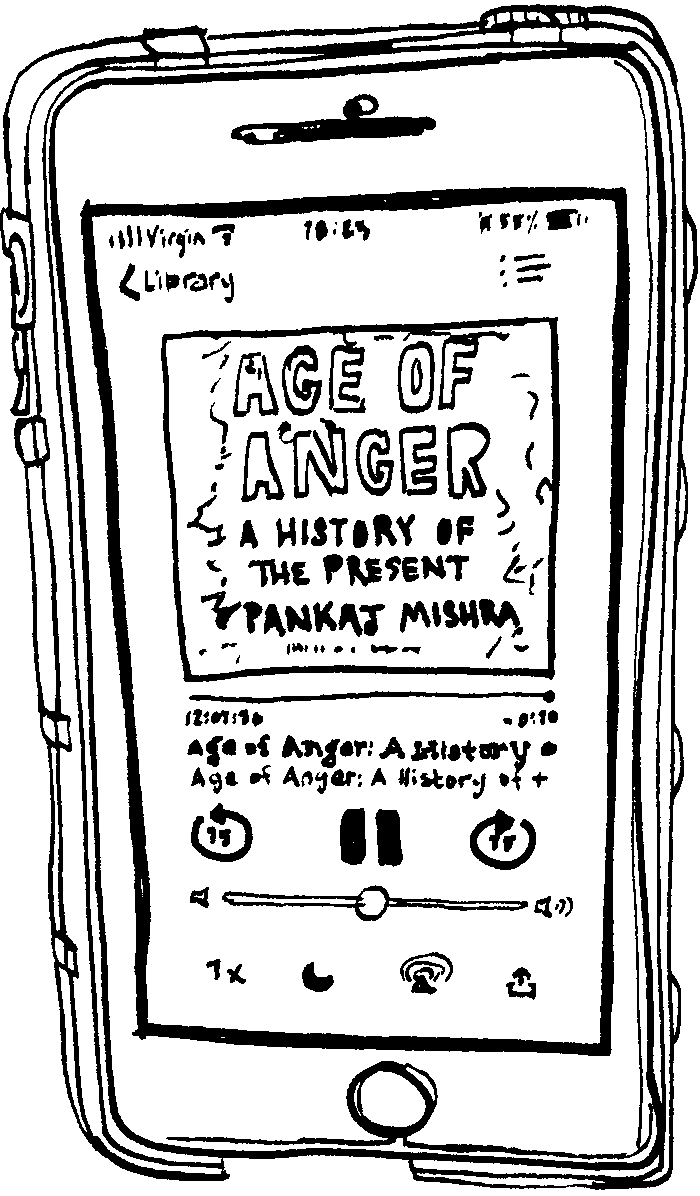 Virgin
55%
Library
AGE OF
ANGER
A HISTORY OF
THE PRESENT
PANKAJ MISHRA
Age of Anger: A History o
Age of Anger: A History of t
15
15
1x